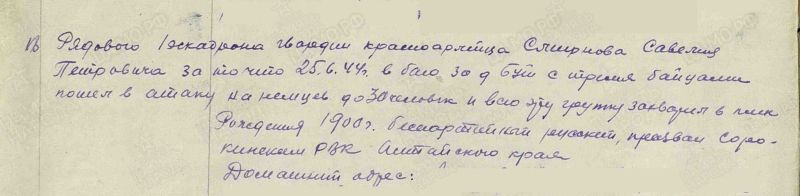 13 Рядового 1 эскадрона гвардии красноармейца Смирнова Савелия
Петровича за то что 25.6.44г. в бою за д. Буй с тремя бойцами
пошел в атаку на немцев до 30 человек и всю эту группу захватил в плен
Рождения 1900г. беспартийный русский, призван Соро-
кинским РВК Алтайского края
Домашний адрес: